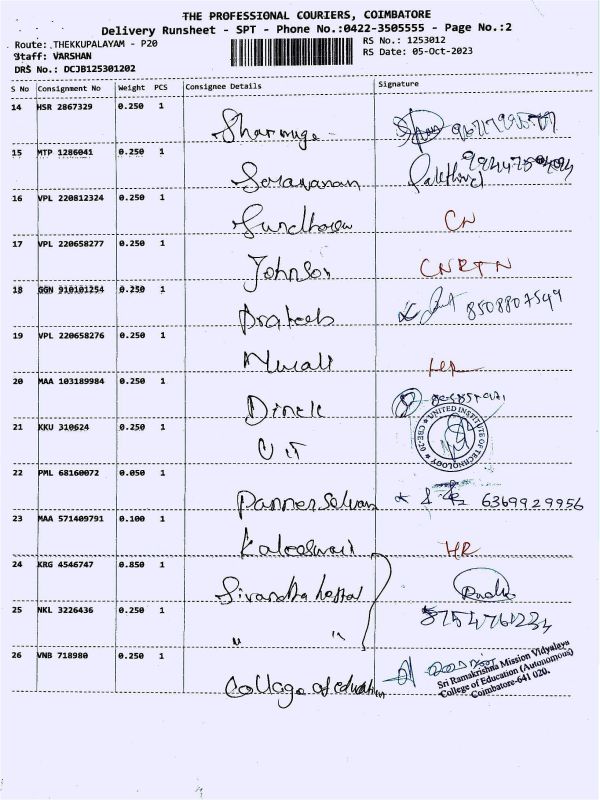 THE PROFESSIONAL COURIERS, COIMBATORE
Delivery Runsheet - SPT - Phone No.:0422-3505555 - Page No.:2
Route: THEKKUPALAYAM - P20
Staff: VARSHAN
DRS No.: DCJB125301202
RS No.: 1253012
RS Date: 05-Oct-2023
S No Consignment No Weight PCS Consignee Details Signature
14 HSR 2867329 0.250 1
15 MTP 1286041 0.250 1
Saravanan
16 VPL 220812324 0.250 1
CN
17 VPL 220658277 0.250 1
Johnson CNRTN
18 GGN 910101254 0.250 1
Prateeb 8508807549
19 VPL 220658276 0.250 1
Murali
20 MAA 103189984 0.250 1
21 KKU 310624 0.250 1
UIT UNITED INSTITUTE OF TECHNOLOGY
22 PML 68160072 0.050 1
Pannerselvam 6369929956
23 MAA 571409791 0.100 1
HR
24 KRG 4546747 0.850 1
25 NKL 3226436 0.250 1
" " 8754761234
26 VNB 718980 0.250 1
College of education
Sri Ramakrishna Mission Vidyalaya
College of Education (Autonomous)
Coimbatore-641 020.